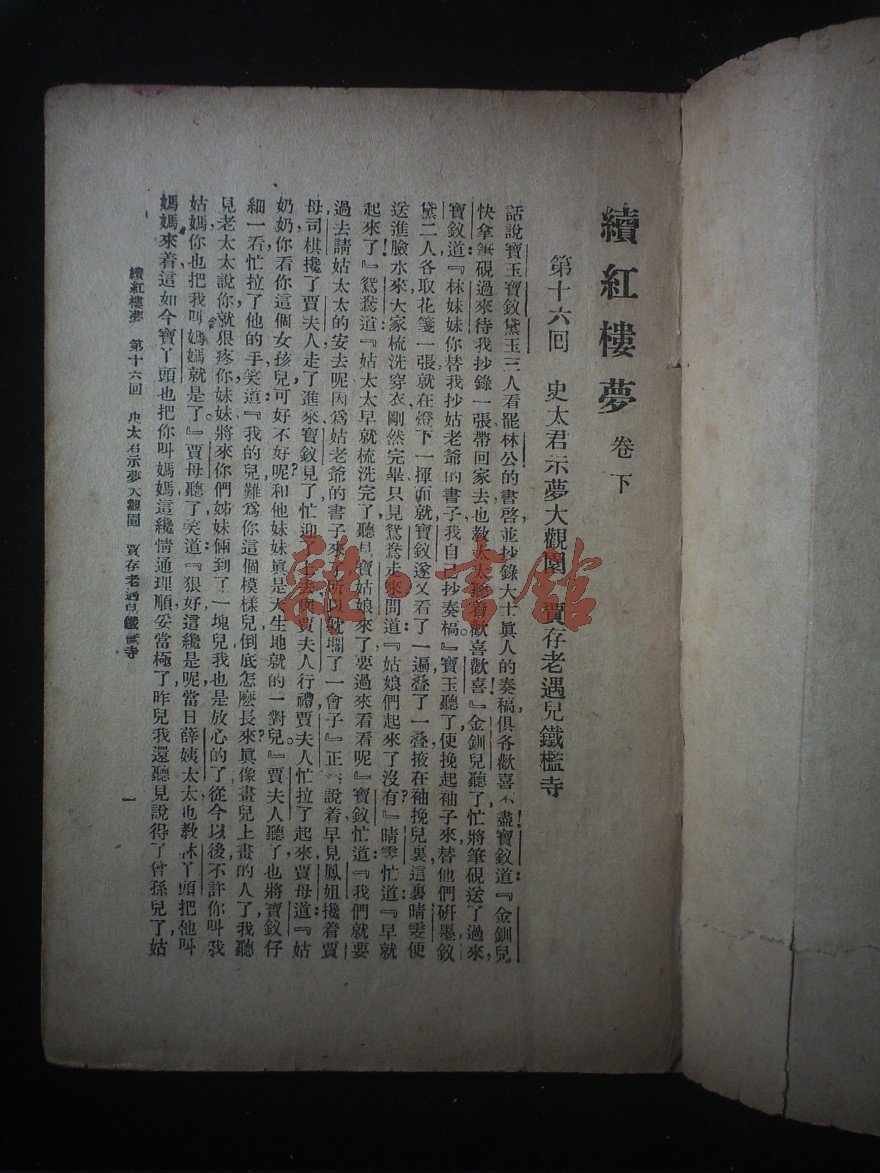 續紅樓夢 卷下
第十六回 史太君示夢大觀園 賈存老遇兒鐵檻寺
話說寶玉寶釵黛玉三人看罷林公的書啓並抄錄大士眞人的奏稿俱各歡喜不盡寶釵道：『金釧兒
快拿筆硯過來待我抄錄一張帶回家去也教太太聽着歡喜歡喜』金釧兒聽了忙將筆硯送了過來，
寶釵道：『林妹妹你替我抄姑老爺的書子我自己抄奏稿。』寶玉聽了便挽起袖子來替他們硏墨釵
黛二人各取花箋一張就在燈下一揮而就寶釵遂又看了一遍叠了一叠掖在袖挽兒裏這裏晴雯便
送進臉水來大家梳洗穿衣剛然完畢只見鴛鴦走來問道：『姑娘們起來了沒有？』晴雯忙道：『早就
起來了！』鴛鴦道：『姑太太早就梳洗完了聽見寶姑娘來了要過來看看呢』寶釵忙道：『我們就要
過去請姑太太的安去呢因爲姑老爺的書子來了所以就擱了一會子』正說着早見鳳姐攙着賈
母司棋攙了賈夫人走了進來寶釵見了忙迎了上去與賈夫人行禮賈夫人忙拉了起來賈母道：『姑
奶奶你看你這個女孩兒可好不好呢？和他妹妹眞是天生地就的一對兒。』賈夫人聽了也將寶釵仔
細一看忙拉了他的手笑道：『我的兒難爲你這個模樣兒倒底怎麼長來？眞像畫兒上畫的人了我聽
見老太太說你就狠疼你妹妹將來你們姊妹倆到了一塊兒我也是放心的了從今以後不許你叫我
姑媽你也把我叫媽媽就是了。』賈母聽了笑道：『狠好這纔是呢當日薛姨太太也教林丫頭把他叫
媽媽來着這如今寶丫頭也把你叫媽媽這纔情通理順妥當極了昨兒我還聽見說得了什孫兒了姑
續紅樓夢 第十六回 史太君示夢大觀園 賈存老遇兒鐵檻寺 一
雜·書館